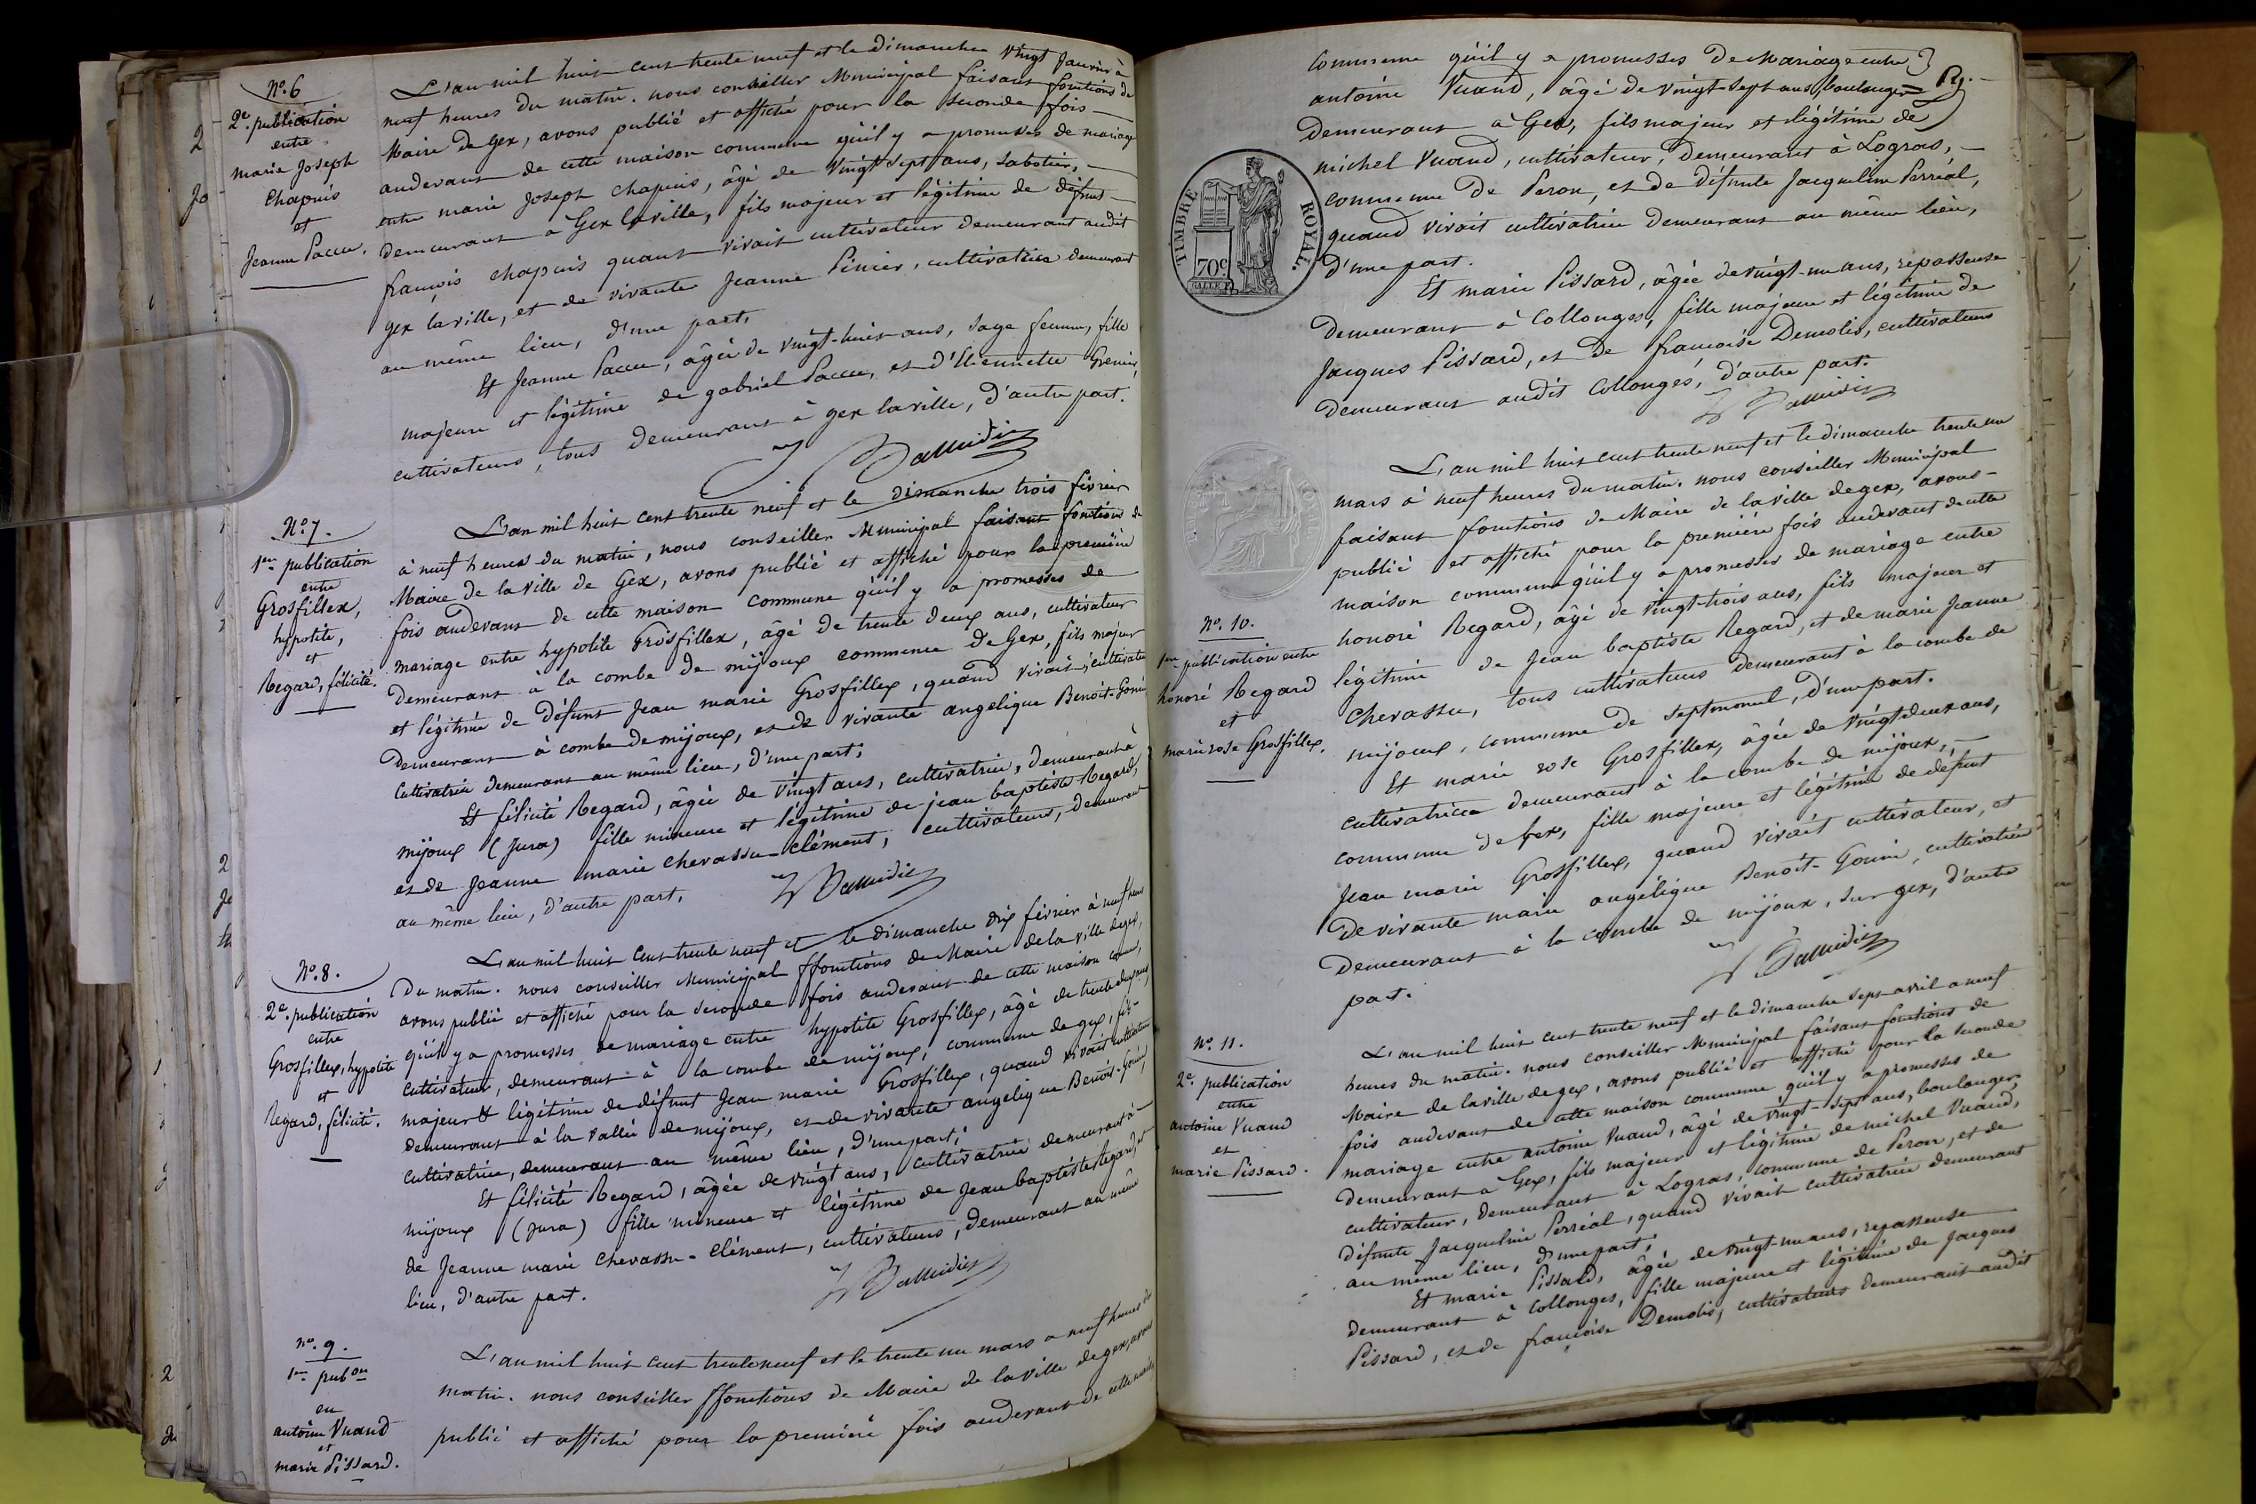 N.o 6
2e. publication
entre
marie Joseph
Chapuis
et
Jeanne Paccu.
L'an mil huit cent trente neuf et le dimanche vingt Janvier à
neuf heures du matin. nous conseiller Municipal faisant fonctions de
Maire de Gex, avons publié et affiché pour la seconde fois
audevant de cette maison commune qu'il y a promesses de mariage
entre marie Joseph chapuis, âgé de vingt sept ans, sabotier,
demeurant à Gex la ville, fils majeur et légitime de défunt
françois chapuis quant vivait cultivateur demeurant audit
gex la ville, et de vivante Jeanne Pinier, cultivatrice demeurant
au même lieu, d'une part,
Et Jeanne Paccu, âgée de vingt-huit ans, sage femme, fille
majeure et légitime de gabriel Paccu, et d'Etiennette Grenier,
cultivateurs, tous demeurant à gex la ville, d'autre part.
N.o 7.
1ere publication
entre
Grosfillex,
hypolite,
et
Regard, félicité.
L'an mil huit cent trente neuf et le dimanche trois février
à neuf heures du matin, nous conseiller Municipal faisant fonctions de
Maire de la ville de Gex, avons publié et affiché pour la première
fois audevant de cette maison commune qu'il y a promesses de
mariage entre hypolite Grosfillex, âgé de trente deux ans, cultivateur
demeurant à la combe de mijoux commune de Gex, fils majeur
et légitime de défunt Jean marie Grosfillex, quand vivait, cultivateur
demeurant à combe de mijoux, et de vivante angelique Benoit-Gonin
cultivatrice demeurant au même lieu, d'une part;
Et félicité Regard, âgée de vingt ans, cultivatrice, demeurant à
mijoux (Jura) fille mineure et légitime de jean baptiste Regard,
et de Jeanne marie Chevassu-clément, cultivateurs, demeurant
au même lieu, d'autre part.
N.o 8.
2e. publication
entre
Grosfillex, hypolite
et
Regard, félicité.
L'an mil huit cent trente neuf et le dimanche dix février à neuf heures
du matin. nous conseiller Municipal ffonctions de Maire de la ville de gex,
avons publié et affiché pour la seconde fois audevant de cette maison comune,
qu'il y a promesses de mariage entre hypolite Grosfillex, âgé de trente deux ans,
cultivateur, demeurant à la combe de mijoux, commune de gex, fils
majeur & légitime de défunt Jean marie Grosfillex, quand vivait cultivateur
demeurant à la vallée de mijoux, et de vivante angelique Benoit-Gonin,
cultivatrice, demeurant au même lieu, d'une part;
Et félicité Regard, âgée de vingt ans, cultivatrice demeurant à
mijoux (Jura) fille mineure et légitime de Jean baptiste Regard, et
de Jeanne marie Chevassu-clément, cultivateurs, demeurant au même
lieu, d'autre part.
N.o 9.
1ere pubon
en
antoine Vuand
et
marie Pissard.
L'an mil huit cent trente neuf et le trente un mars à neuf heures du
matin. nous conseiller ffonctions de Maire de la ville de gex, avons
publié et affiché pour la première fois audevant de cette maison
Commune qu'il y a promesses de Mariage entre
antoine Vuand, âgé de vingt-sept ans, boulanger
demeurant à Gex, fils majeur et légitime de
michel Vuand, cultivateur, demeurant à Logras,
commune de Peron, et de défunte Jacqueline Perréal,
quand vivait cultivatrice demeurant au même lieu,
d'une part.
Et marie Pissard, âgée de vingt-un ans, repasseuse
demeurant à Collonges, fille majeure et légitime de
Jacques Pissard, et de francoise Demolis, cultivateurs
demeurant audit Collonges, d'autre part.
TIMBRE ROYAL.
70c
N.o 10.
1ere publication entre
honoré Regard
et
marie rose Grosfillex.
L'an mil huit cent trente neuf et le dimanche trente un
mars à neuf heures du matin. nous conseiller Municipal
faisant fonctions de Maire de la ville de gex, avons
publié et affiché pour la première fois audevant de cette
maison commune qu'il y a promesses de mariage entre
honoré Regard, âgé de vingt-trois ans, fils majeur et
légitime de Jean baptiste Regard, et de marie Jeanne
Chevassu, tous cultivateurs demeurant à la combe de
mijoux, commune de Septmoncel, d'une part.
Et marie rose Grosfillex, âgée de vingt deux ans,
cultivatrice demeurant à la combe de mijoux,
commune de Gex, fille majeure et légitime de défunt
Jean marie Grosfillex, quand vivait cultivateur, et
de vivante marie angélique Benoit-Gonin, cultivatrice
demeurant à la combe de mijoux, sur gex, d'autre
part.
N.o 11.
2e. publication
entre
antoine Vuand
et
marie Pissard.
L'an mil huit cent trente neuf et le dimanche sept avril à neuf
heures du matin. nous conseiller Municipal faisant fonctions de
Maire de la ville de gex, avons publié et affiché pour la seconde
fois audevant de cette maison commune qu'il y a promesses de
mariage entre antoine Vuand, âgé de vingt-sept ans, boulanger,
demeurant à Gex, fils majeur et légitime de michel Vuand,
cultivateur, demeurant à Logras, commune de Peron, et de
défunte Jacqueline Perréal, quand vivait cultivatrice demeurant
au même lieu, d'une part;
Et marie Pissard, âgée de vingt-un ans, repasseuse
demeurant à Collonges, fille majeure et légitime de Jacques
Pissard, et de françoise Demolis, cultivateurs demeurant audit